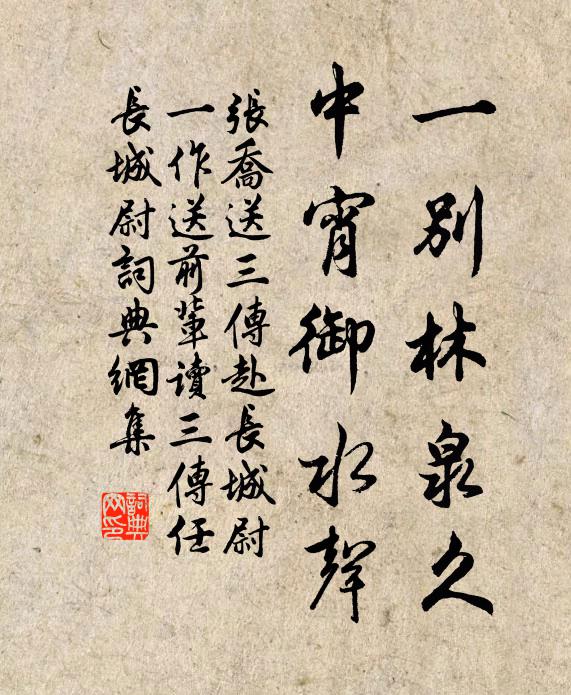 一別林泉久
中宵御水聲
張喬送三傳赴長城尉
一作送前輩讀三傳任
長城尉詞典網集
詞典
网印